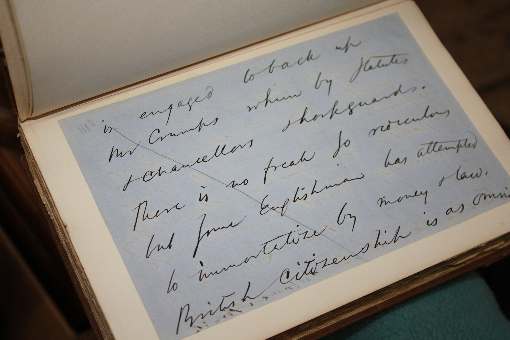 is engaged to back up
Mr Crumps whim by statutes
& chancellors & horseguards.
There is no freak so ridiculous
but some Englishman has attempted
to immortalize by money & law.
British citizenship is as omni